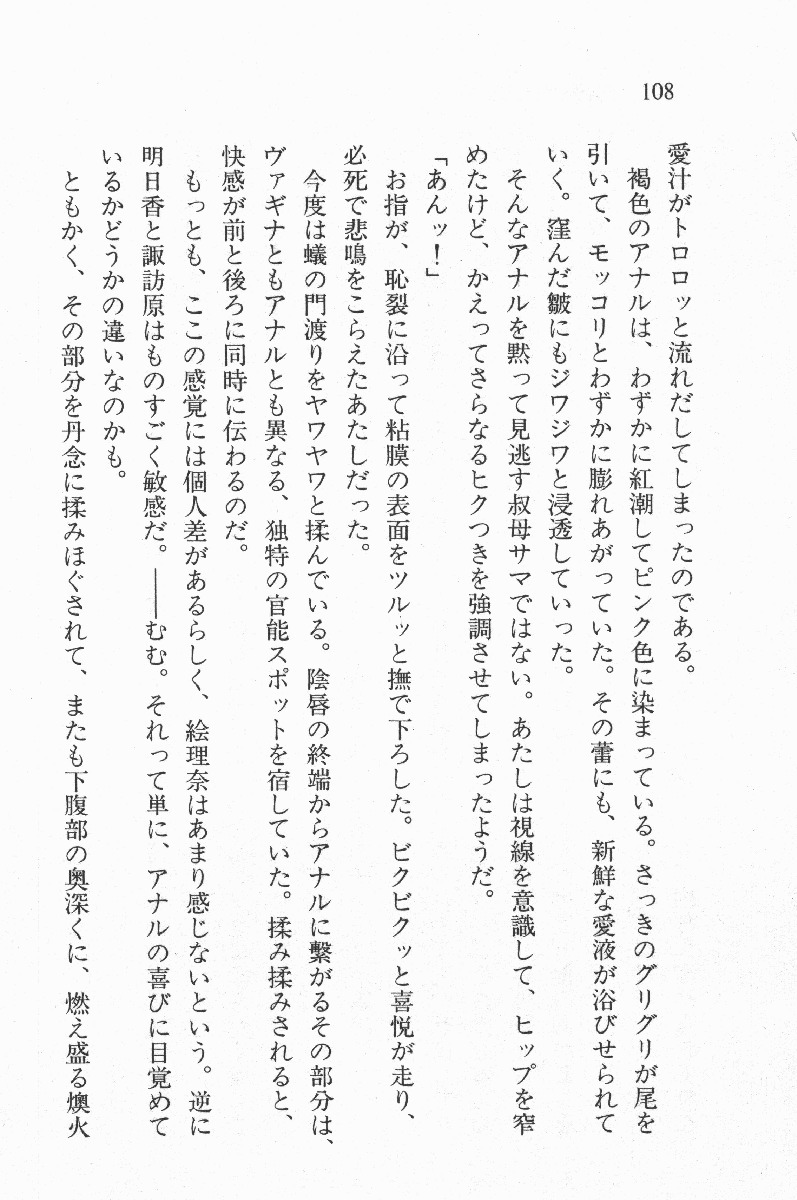 108
愛汁がトロロッと流れだしてしまったのである。
褐色のアナルは、わずかに紅潮してピンク色に染まっている。さっきのグリグリが尾を
引いて、モッコリとわずかに膨れあがっていた。その蕾にも、新鮮な愛液が浴びせられて
いく。窪んだ皺にもジワジワと浸透していった。
そんなアナルを黙って見逃す叔母サマではない。あたしは視線を意識して、ヒップを窄
めたけど、かえってさらなるヒクつきを強調させてしまったようだ。
「あんッ！」
お指が、恥裂に沿って粘膜の表面をツルッと撫で下ろした。ビクビクッと喜悦が走り、
必死で悲鳴をこらえたあたしだった。
今度は蟻の門渡りをヤワヤワと揉んでいる。陰唇の終端からアナルに繋がるその部分は、
ヴァギナともアナルとも異なる、独特の官能スポットを宿していた。揉み揉みされると、
快感が前と後ろに同時に伝わるのだ。
もっとも、ここの感覚には個人差があるらしく、絵理奈はあまり感じないという。逆に
明日香と諏訪原はものすごく敏感だ。――むむ。それって単に、アナルの喜びに目覚めて
いるかどうかの違いなのかも。
ともかく、その部分を丹念に揉みほぐされて、またも下腹部の奥深くに、燃え盛る燠火